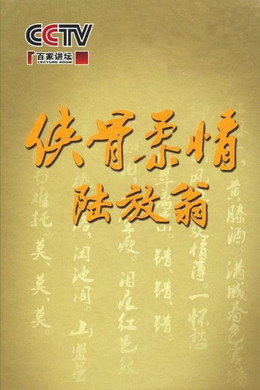 CCTV
百家讲坛
LECTURE ROOM
侠骨柔情
陆放翁
黄縢酒 满城春色宫
风恶 欢情薄 一怀愁
错、错、错
瘦 泪痕红浥鲛
闲池阁 山盟虽
难托 莫、莫、莫。